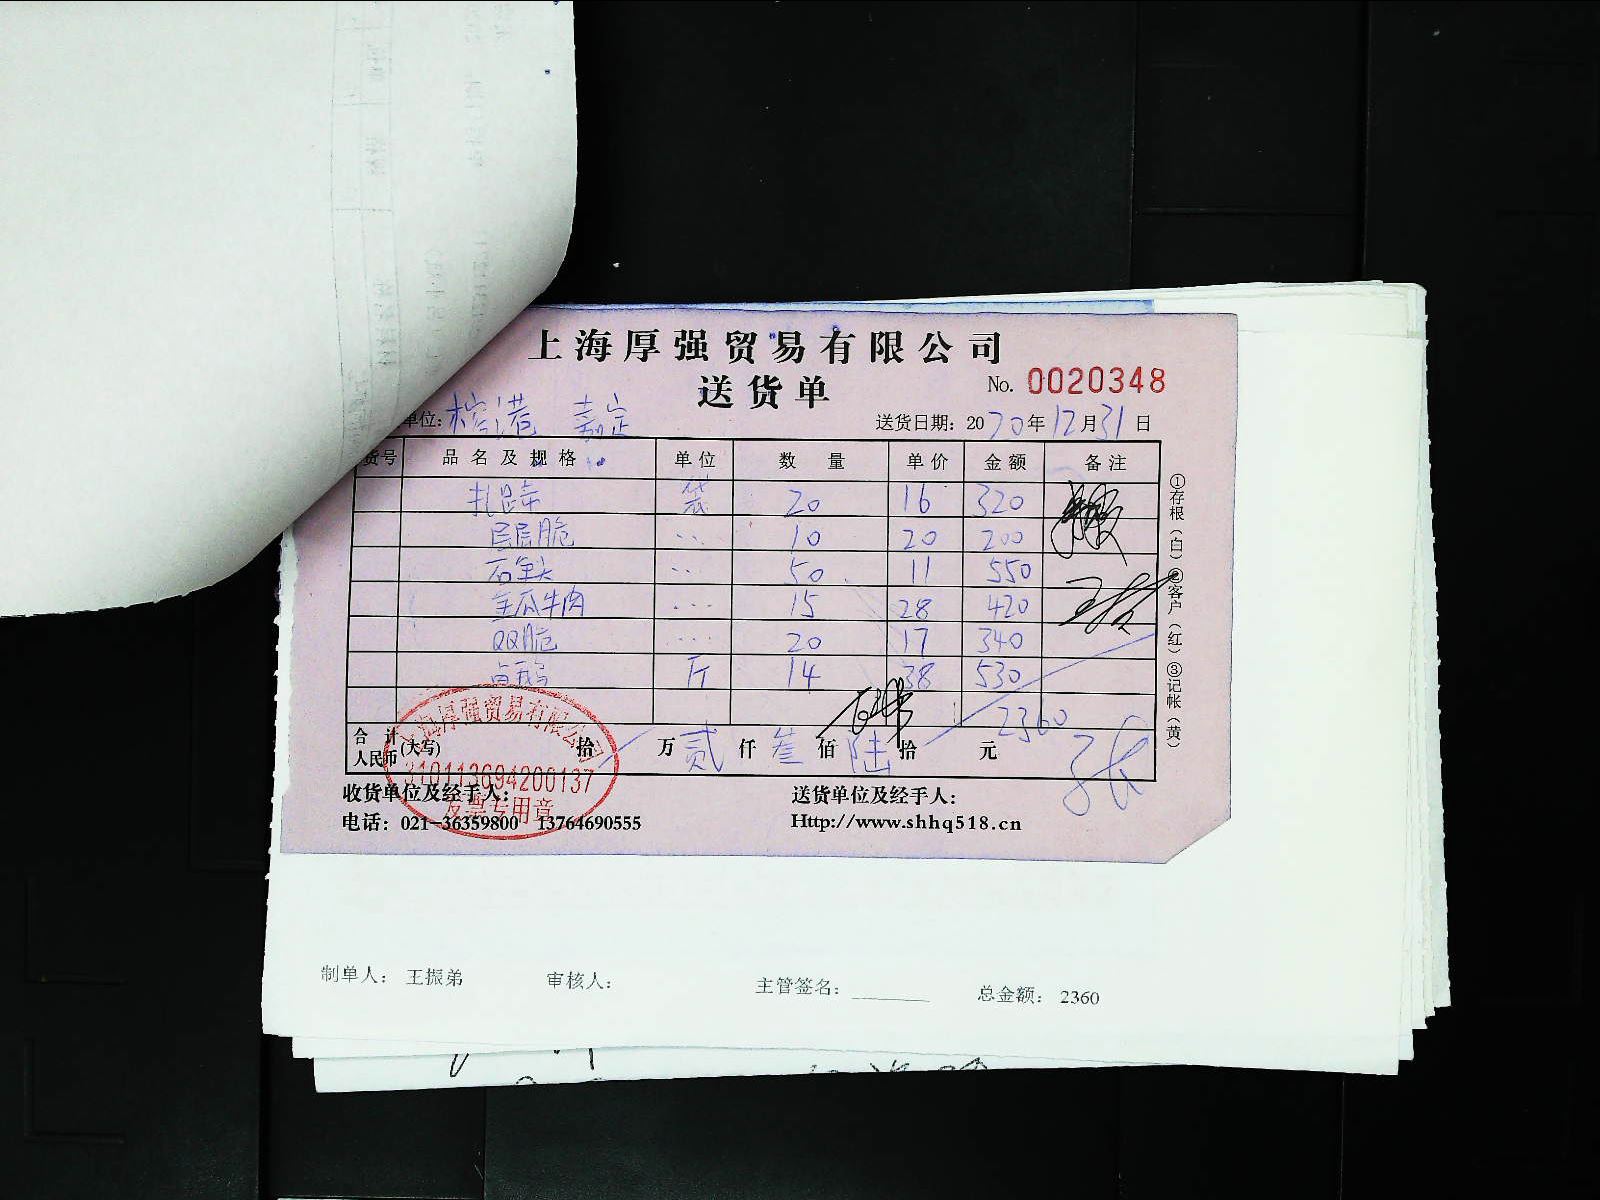 上海厚强贸易有限公司
送货单
No. 0020348
单位: 嘉定
送货日期: 2020年12月31日
货号 品名及规格 单位 数量 单价 金额 备注
扎蹄 袋 20 16 320
层层脆 ... 10 20 200
... 50 11 550
牛肉 ... 15 28 420
QQ脆 ... 20 17 340
斤 14 38 530
2360
合计人民币(大写) 拾 万 贰 仟 叁 佰 陆 拾 元
上海厚强贸易有限公司
310113694200137
发票专用章
收货单位及经手人:
送货单位及经手人:
电话: 021-36359800 13764690555
Http://www.shhq518.cn
①存根(白)②客户(红)③记帐(黄)
制单人: 王振弟 审核人: 主管签名: 总金额: 2360